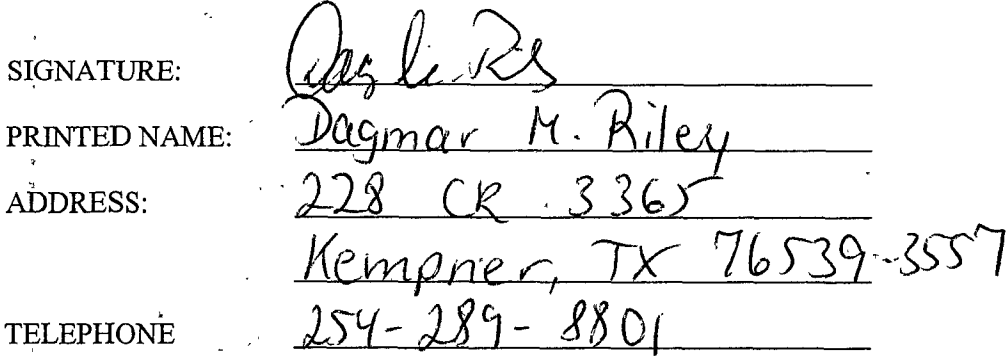 SIGNATURE:
PRINTED NAME: Dagmar M. Riley
ADDRESS: 228 CR 3365
Kempner, TX 76539-3557
TELEPHONE 254-289-8801